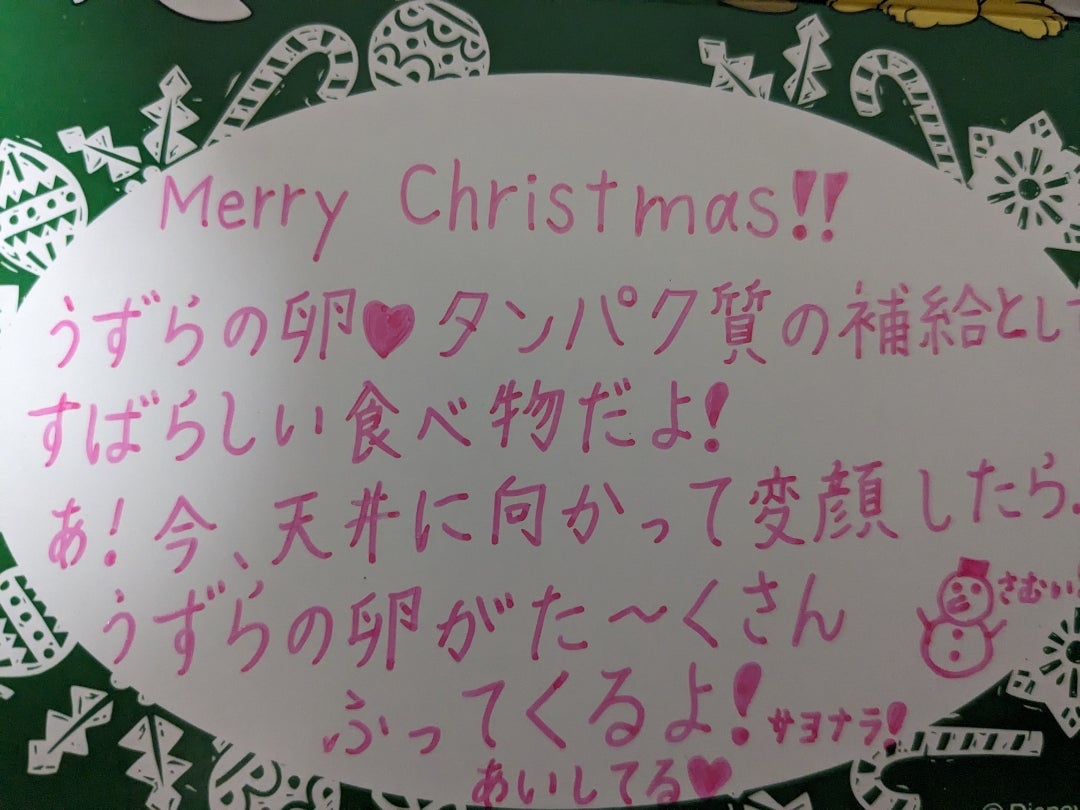 Merry Christmas!!
うずらの卵♥タンパク質の補給として
すばらしい食べ物だよ!
あ!今、天井に向かって変顔したら、
うずらの卵がた〜くさん
さむい!
ふってくるよ!サヨナラ!
あいしてる♥